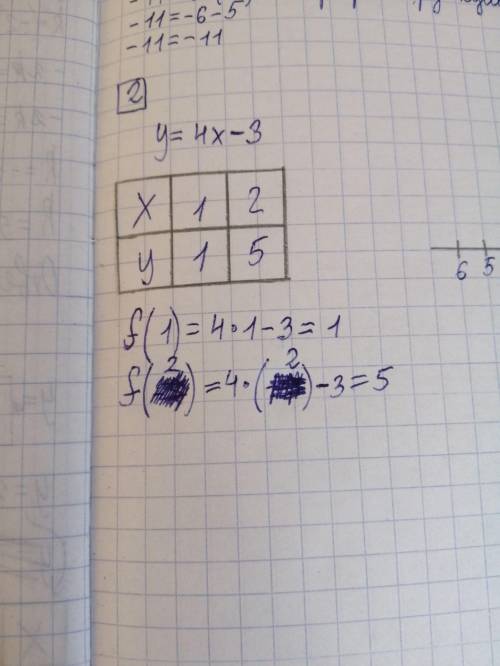 -11=-6-5
-11=-11
2
y=4x-3
x 1 2
y 1 5
f(1)=4·1-3=1
f(2)=4·(2)-3=5
6 5